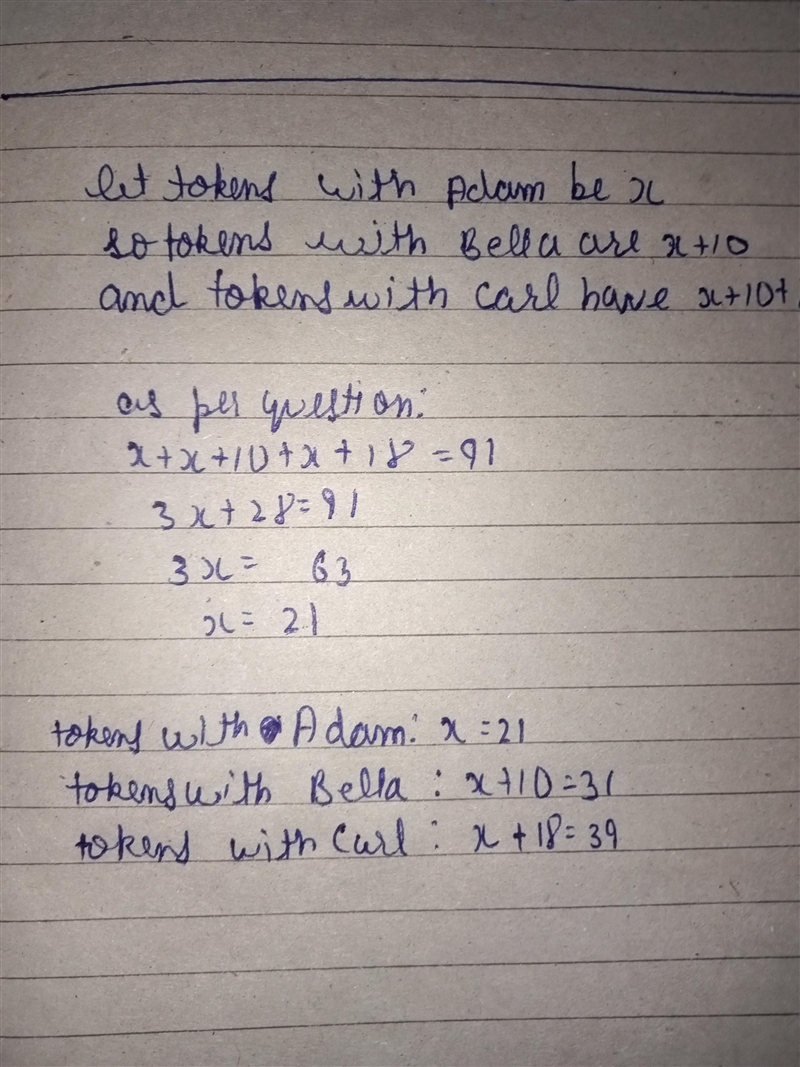 let tokens with Adam be x
so tokens with Bella are x+10
and tokens with Carl have x+10+
as per question:
x+x+10+x+18=91
3x+28=91
3x= 63
x= 21
tokens with Adam: x=21
tokens with Bella: x+10=31
tokens with Carl: x+18=39